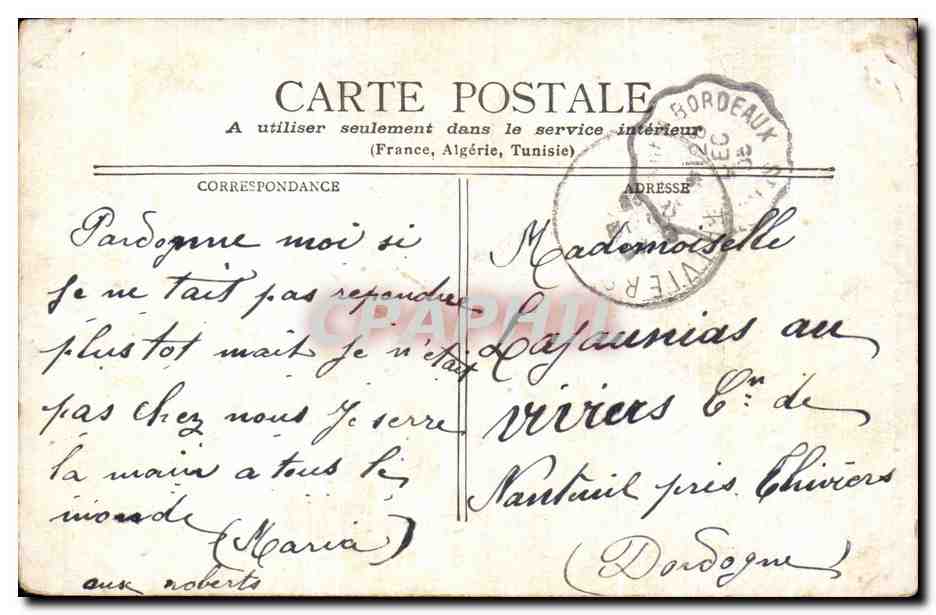 CARTE POSTALE
A utiliser seulement dans le service intérieur
(France, Algérie, Tunisie)
CORRESPONDANCE
Pardonne moi si
Je ne tait pas repondre
plus tot mait je n'etait
pas chez nous Je serre
la main a tous le
monde
(Maria)
aux roberts
ADRESSE
Mademoiselle
Lajaunias au
viviers Cne de
Nanteuil près Thiviers
(Dordogne)
BORDEAUX
28
DEC
CPAPHIL